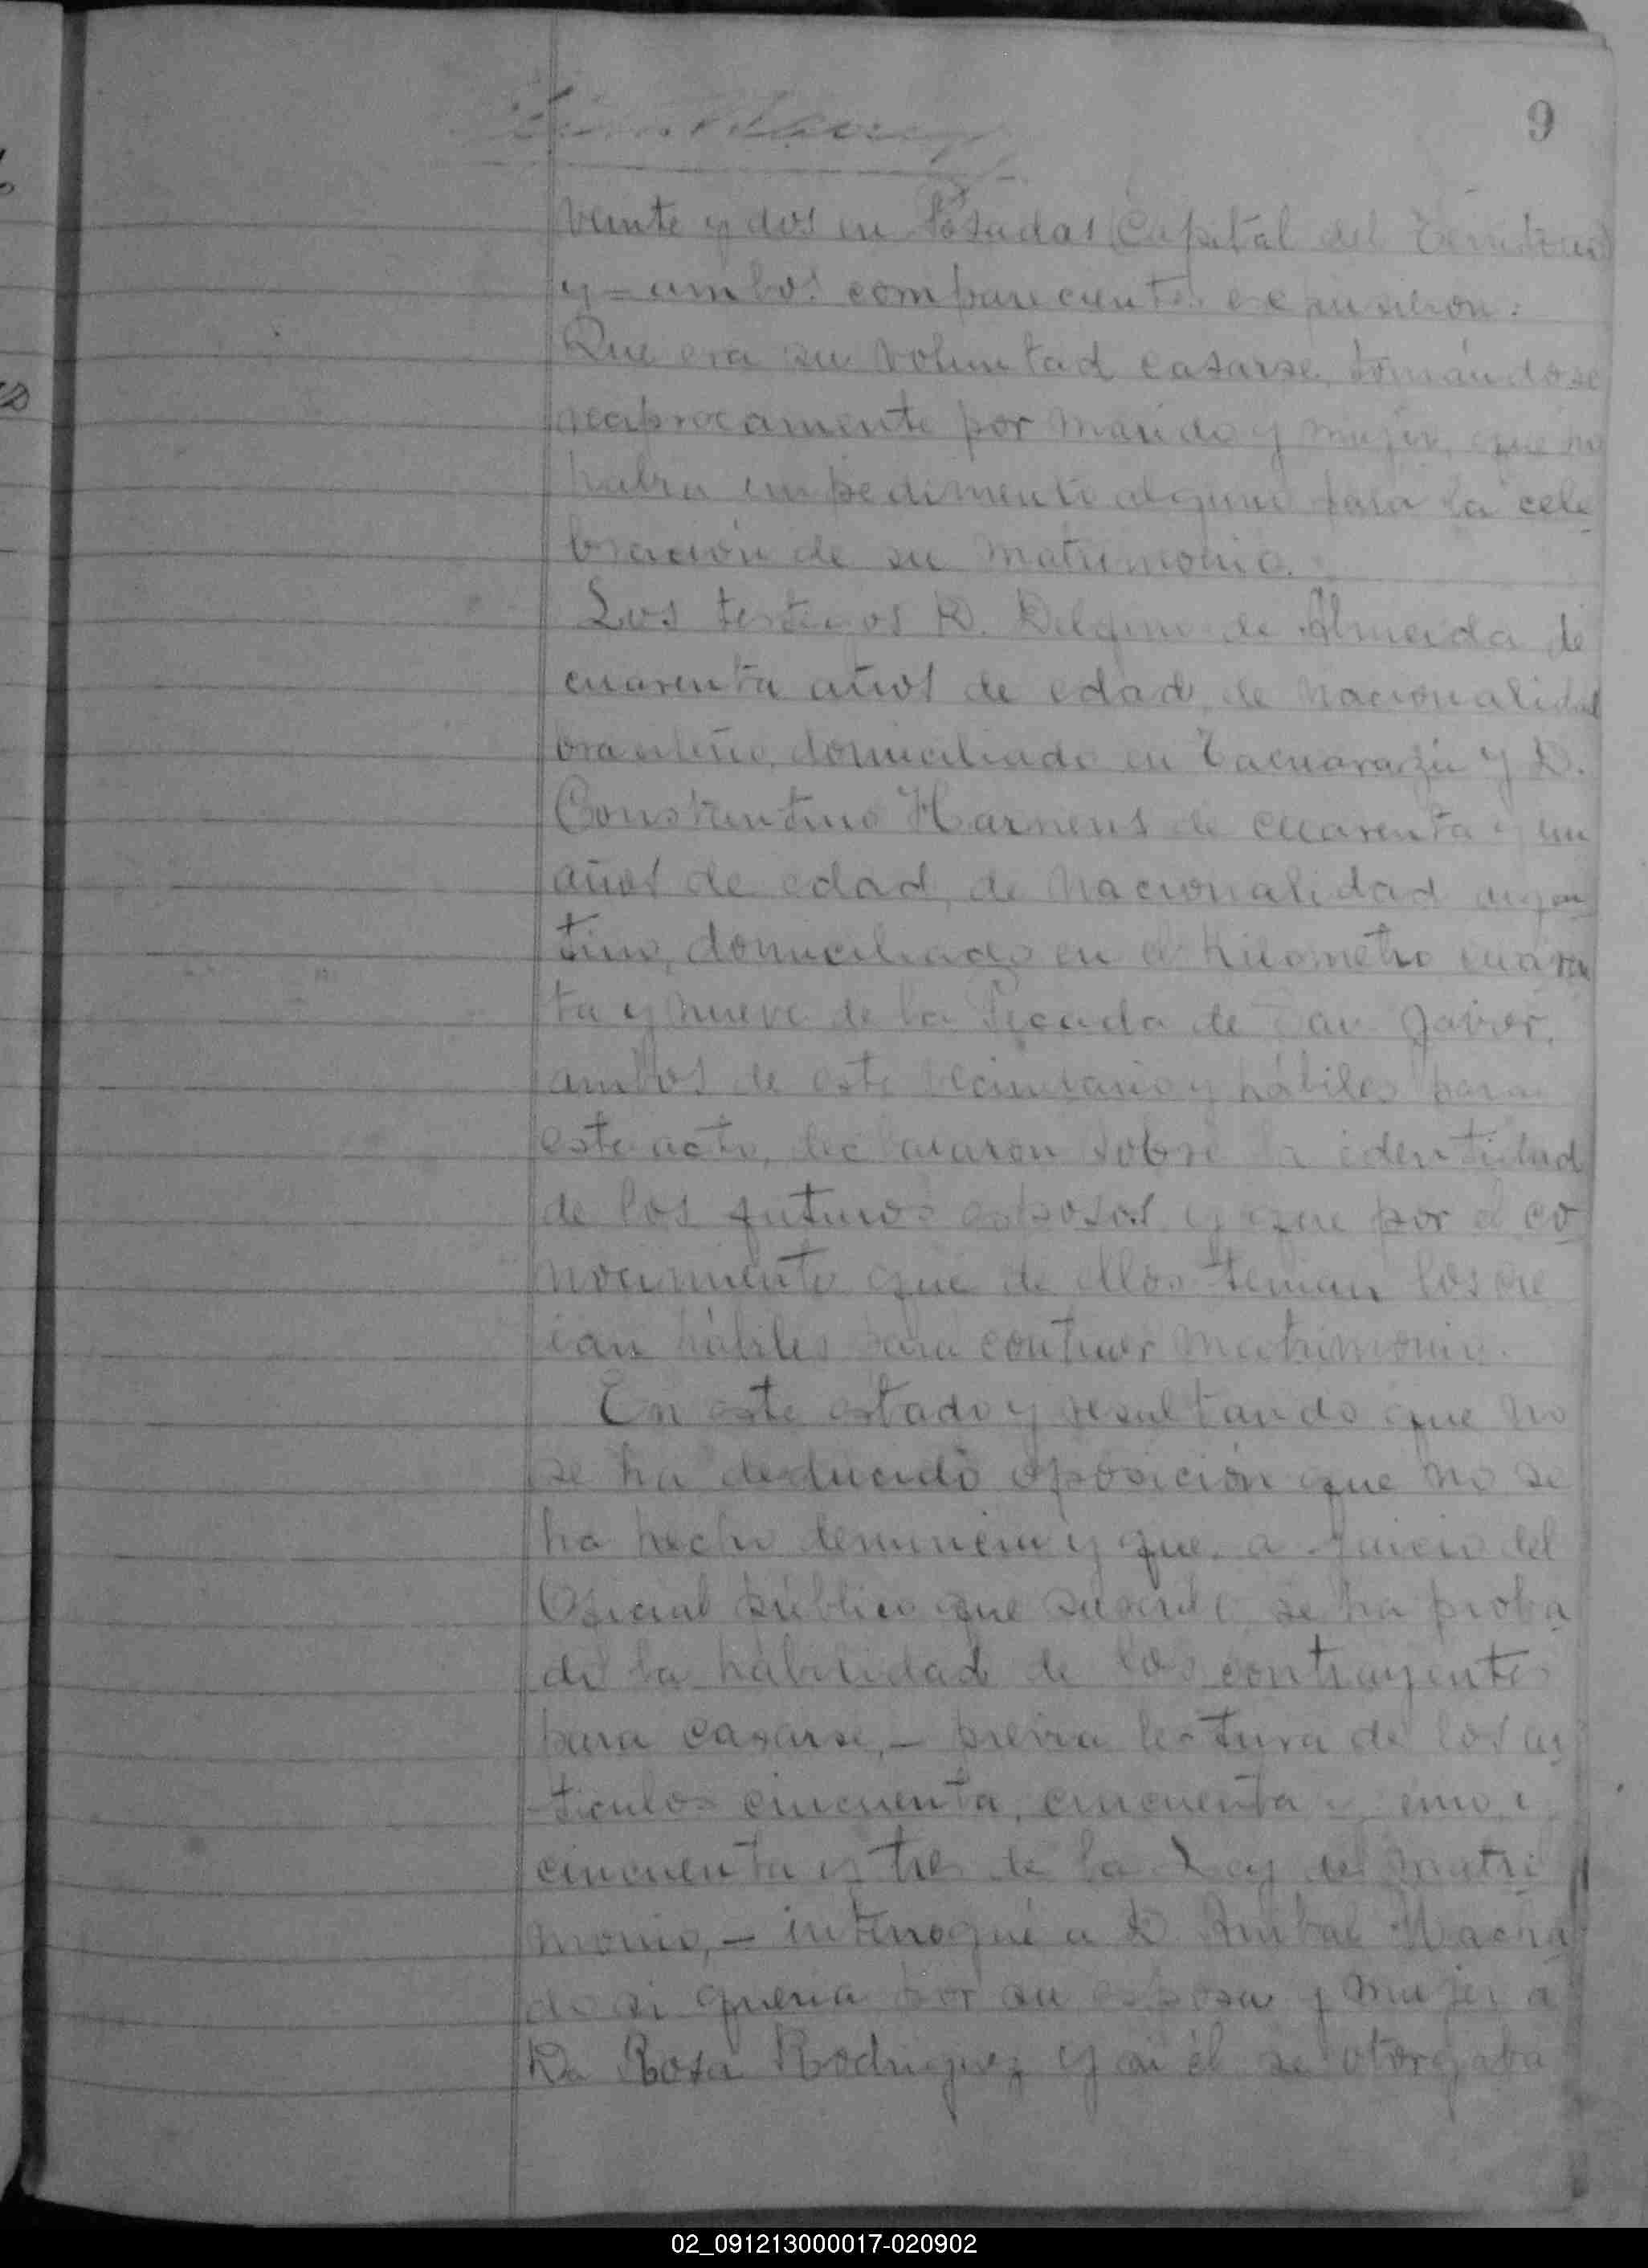 9
veinte y dos en Posadas (Capital del Territorio)
y = ambos comparecientes expusieron:
Que era su voluntad casarse, tomándose
reciprocamente por marido y mujer, que no
habia impedimento alguno para la cele
bración de su matrimonio.
Los testigos D. de Almeida de
cuarenta años de edad, de nacionalidad
brasileño, domiciliado en Tacuaruzú y D.
Constantino Harnens de cuarenta y un
años de edad, de nacionalidad argen
tino, domiciliado en el kilometro cuaren
ta y nueve de la Picada de San Javier,
ambos de este vecindario y hábiles para
este acto, declararon sobre la identidad
de los futuros esposos y que por el co
nocimiento que de ellos tenian los cre
ian hábiles para contraer matrimonio.
En este estado y resultando que no
se ha deducido oposición que no se
ha hecho denuncia y que, a juicio del
Oficial público que suscribe, se ha proba
do la habilidad de los contrayentes
para casarse, — previa lectura de los ar
ticulos cincuenta, cincuenta y uno, i
cincuenta y tres de la Ley de matri
monio, — interrogué a D Anibal Macha
do si queria por su esposa y mujer a
Da Rosa Rodriguez y si él se otorgaba
02_091213000017-020902